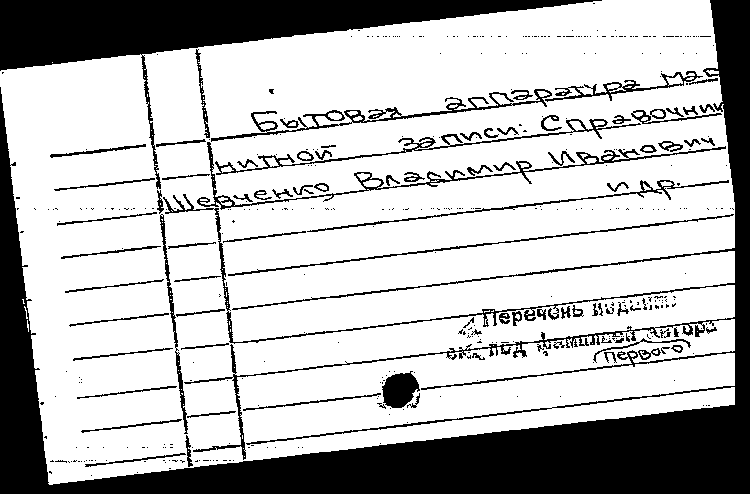 Бытовая аппаратура маг
нитной записи: Справочник
Шевченко, Владимир Иванович
и др.
Перечень изданий
см. под фамилией автора
первого